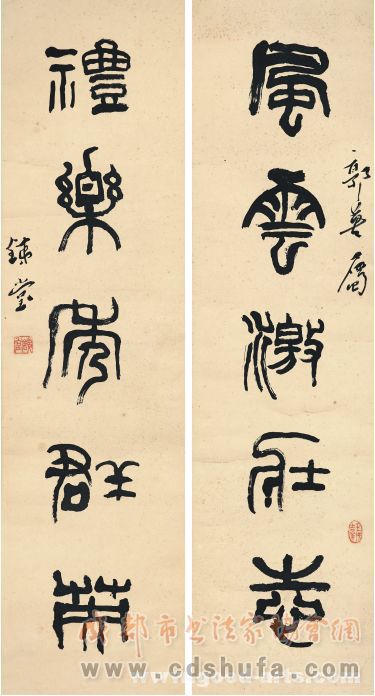 風雲激壯志
禮樂秀群英
成都市书法家协会网
www.cdshufa.com